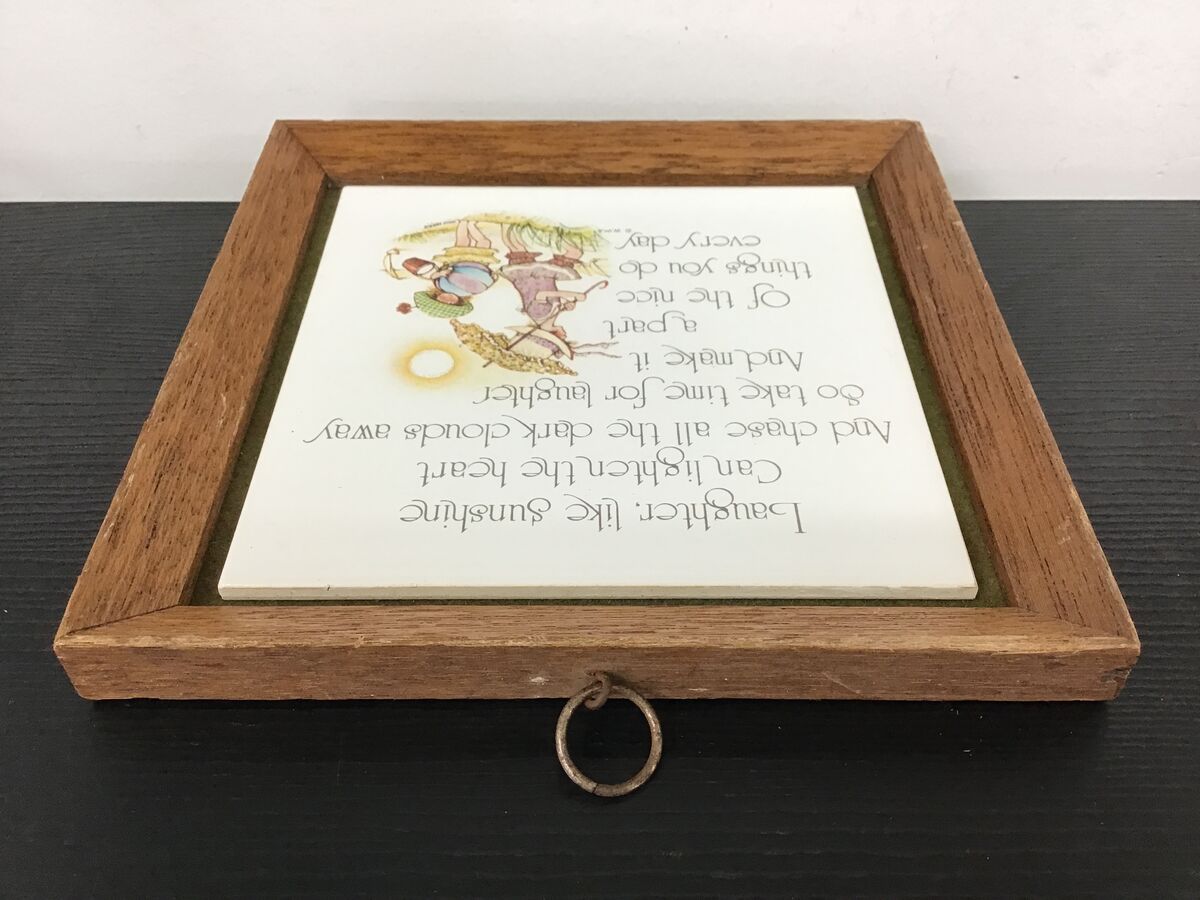 Laughter, like sunshine
Can lighten the heart
And chase all the dark clouds away
So take time for laughter
And make it
a part
Of the nice
things you do
every day